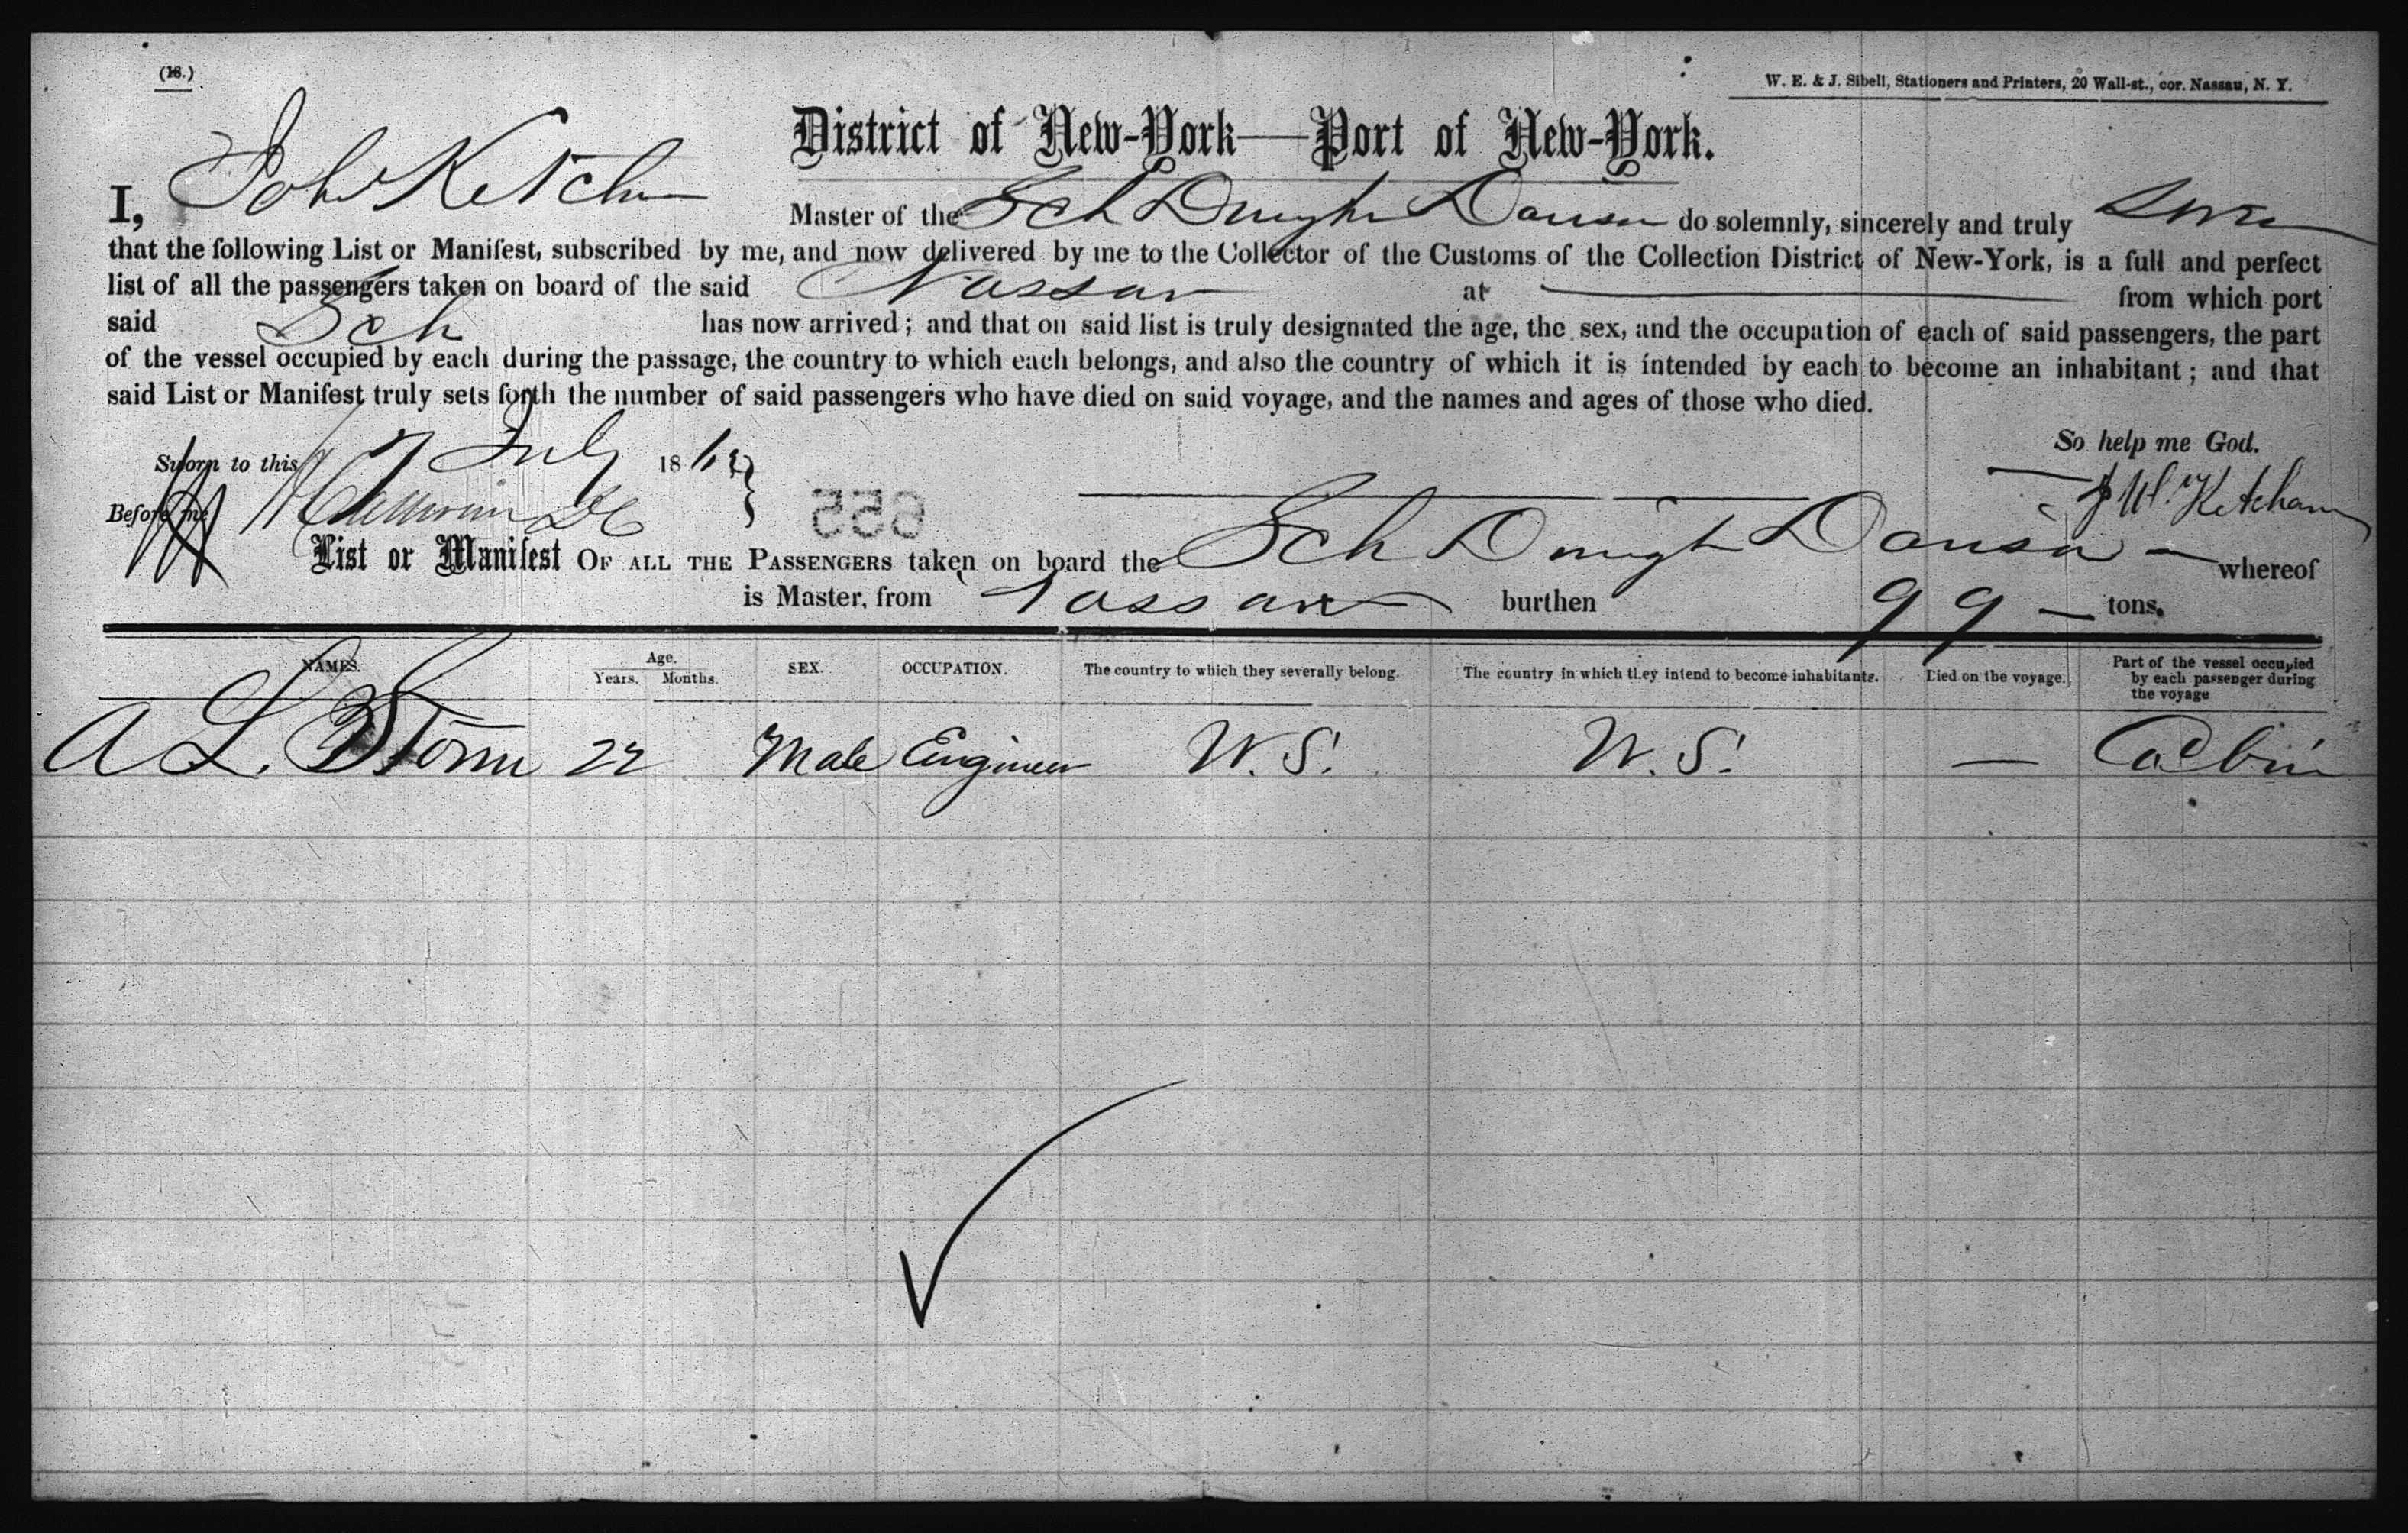 (16.)
W. E. & J. Sibell, Stationers and Printers, 20 Wall-st., cor. Nassau, N. Y.
District of New-York—Port of New-York.
I, John Ketcham Master of the Sch Dwight do solemnly, sincerely and truly swear
that the following List or Manifest, subscribed by me, and now delivered by me to the Collector of the Customs of the Collection District of New-York, is a full and perfect
list of all the passengers taken on board of the said Nassau at — from which port
said Sch has now arrived; and that on said list is truly designated the age, the sex, and the occupation of each of said passengers, the part
of the vessel occupied by each during the passage, the country to which each belongs, and also the country of which it is intended by each to become an inhabitant; and that
said List or Manifest truly sets forth the number of said passengers who have died on said voyage, and the names and ages of those who died.
So help me God.
Sworn to this 7 July 186
J W. Ketcham
Before me
List or Manifest OF ALL THE PASSENGERS taken on board the Sch Dwight whereof
is Master, from Nassau burthen 99 — tons.
NAMES. Age. Years. Months. SEX. OCCUPATION. The country to which they severally belong. The country in which they intend to become inhabitants. Died on the voyage. Part of the vessel occupied by each passenger during the voyage
A L. Storm 22 Male Engineer U. S. U. S. — Cabin